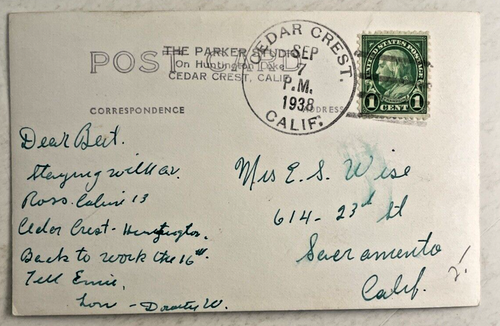 POST CARD
THE PARKER STUDIO
On Huntington Lake
CEDAR CREST, CALIF.
CEDAR CREST.
SEP
7
P.M.
1938
CALIF.
UNITED STATES POSTAGE
1 1
CENT
CORRESPONDENCE
ADDRESS
Dear Bert.
Staying with
Ross. Cabin 13
Cedar Crest - Huntington.
Back to work the 16th.
Tell Ernie,
Love - W.
Mrs E. S. Wise
614 - 23rd St
Sacramento
Calif.